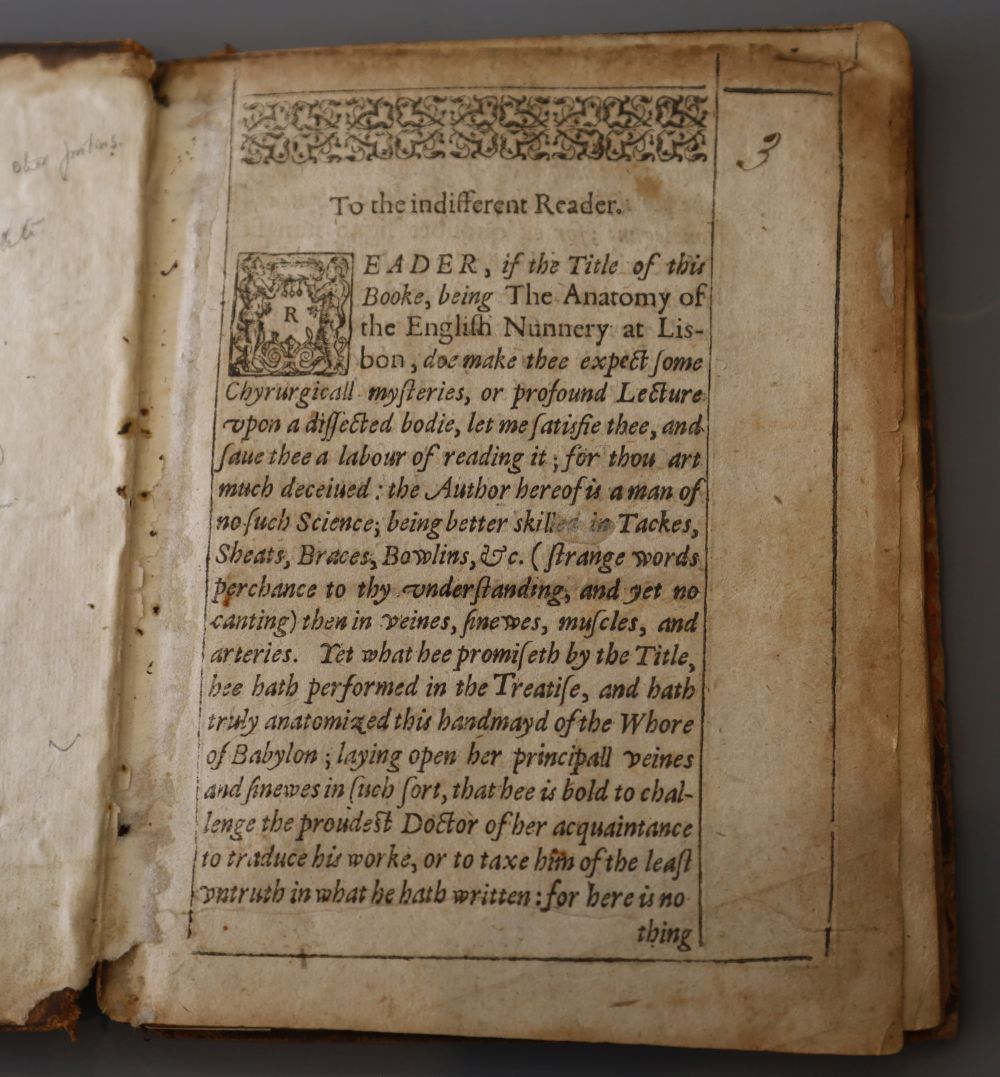 3
To the indifferent Reader.
READER, if the Title of this
Booke, being The Anatomy of
the Engliſh Nunnery at Liſ-
bon, doe make thee expect ſome
Chyrurgicall myſteries, or profound Lecture
vpon a diſſected bodie, let me ſatisfie thee, and
ſaue thee a labour of reading it; for thou art
much deceiued: the Author hereof is a man of
no ſuch Science; being better skilled in Tackes,
Sheats, Braces, Bowlins, &c. (ſtrange words
perchance to thy vnderſtanding, and yet no
canting) then in veines, ſinewes, muſcles, and
arteries. Yet what hee promiſeth by the Title,
hee hath performed in the Treatiſe, and hath
truly anatomized this handmayd of the Whore
of Babylon; laying open her principall veines
and ſinewes in ſuch ſort, that hee is bold to chal-
lenge the proudeſt Doctor of her acquaintance
to traduce his worke, or to taxe him of the leaſt
vntruth in what he hath written: for here is no
thing